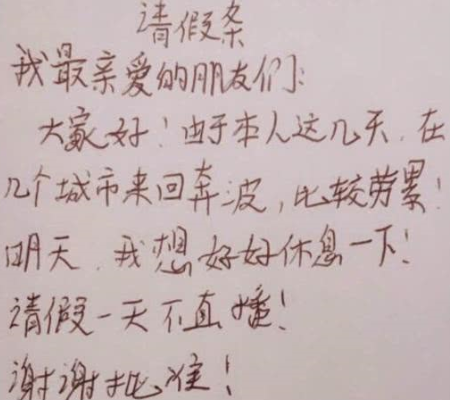 请假条
我最亲爱的朋友们:
大家好!由于本人这几天.在
几个城市来回奔波,比较劳累!
明天.我想好好休息一下!
请假一天不直播!
谢谢批准!